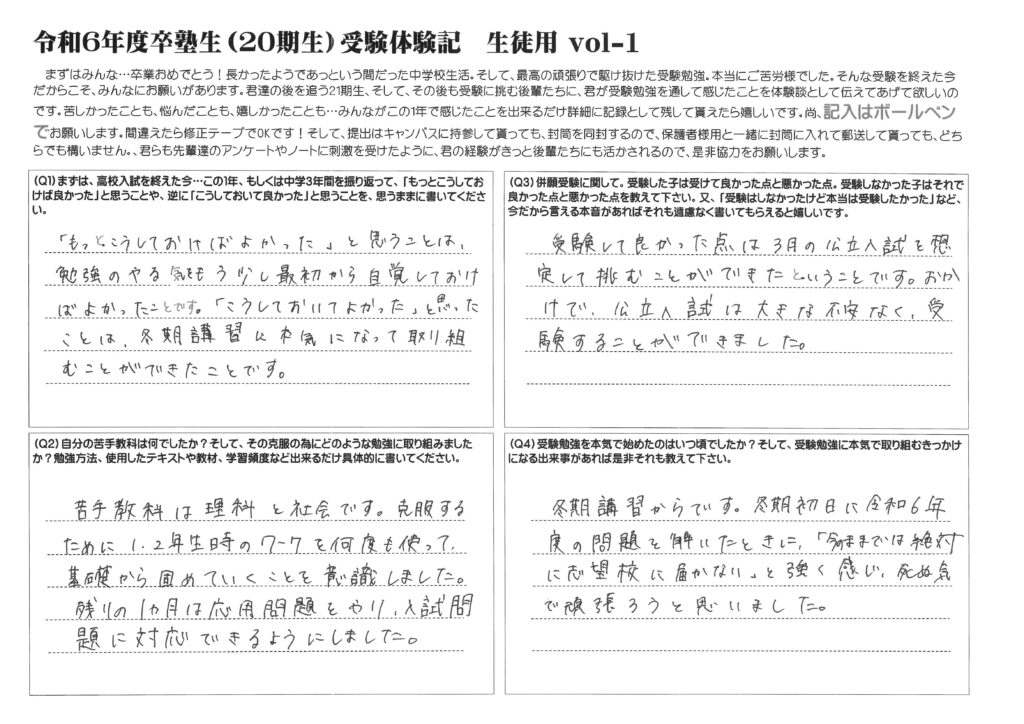 令和6年度卒塾生（20期生）受験体験記　生徒用 vol-1
まずはみんな…卒業おめでとう！長かったようであっという間だった中学校生活。そして、最高の頑張りで駆け抜けた受験勉強。本当にご苦労様でした。そんな受験を終えた今
だからこそ、みんなにお願いがあります。君達の後を追う21期生、そして、その後も受験に挑む後輩たちに、君が受験勉強を通して感じたことを体験談として伝えてあげて欲しいの
です。苦しかったことも、悩んだことも、嬉しかったことも…みんながこの1年で感じたことを出来るだけ詳細に記録として残して貰えたら嬉しいです。尚、記入はボールペン
でお願いします。間違えたら修正テープでOKです！そして、提出はキャンパスに持参して貰っても、封筒を同封するので、保護者様用と一緒に封筒に入れて郵送して貰っても、どち
らでも構いません。、君らも先輩達のアンケートやノートに刺激を受けたように、君の経験がきっと後輩たちにも活かされるので、是非協力をお願いします。
（Q1）まずは、高校入試を終えた今…この1年、もしくは中学3年間を振り返って、「もっとこうしてお
けば良かった」と思うことや、逆に「こうしておいて良かった」と思うことを、思うままに書いてくださ
い。
「もっとこうしておけばよかった」と思うことは、
勉強のやる気をもう少し最初から自覚しておけ
ばよかったことです。「こうしておいてよかった」と思った
ことは、冬期講習に本気になって取り組
むことができたことです。
（Q2）自分の苦手教科は何でしたか？そして、その克服の為にどのような勉強に取り組みました
か？勉強方法、使用したテキストや教材、学習頻度など出来るだけ具体的に書いてください。
苦手教科は理科と社会です。克服する
ために1.2年生時のワークを何度も使って、
基礎から固めていくことを意識しました。
残りの1カ月は応用問題をやり、入試問
題に対応できるようにしました。
（Q3）併願受験に関して。受験した子は受けて良かった点と悪かった点。受験しなかった子はそれで
良かった点と悪かった点を教えて下さい。又、「受験はしなかったけど本当は受験したかった」など、
今だから言える本音があればそれも遠慮なく書いてもらえると嬉しいです。
受験して良かった点は3月の公立入試を想
定して挑むことができたということです。おか
げで、公立入試は大きな不安なく、受
験することができました。
（Q4）受験勉強を本気で始めたのはいつ頃でしたか？そして、受験勉強に本気で取り組むきっかけ
になる出来事があれば是非それも教えて下さい。
冬期講習からです。冬期初日に令和6年
度の問題を解いたときに、「今のままでは絶対
に志望校に届かない」と強く感じ、死ぬ気
で頑張ろうと思いました。